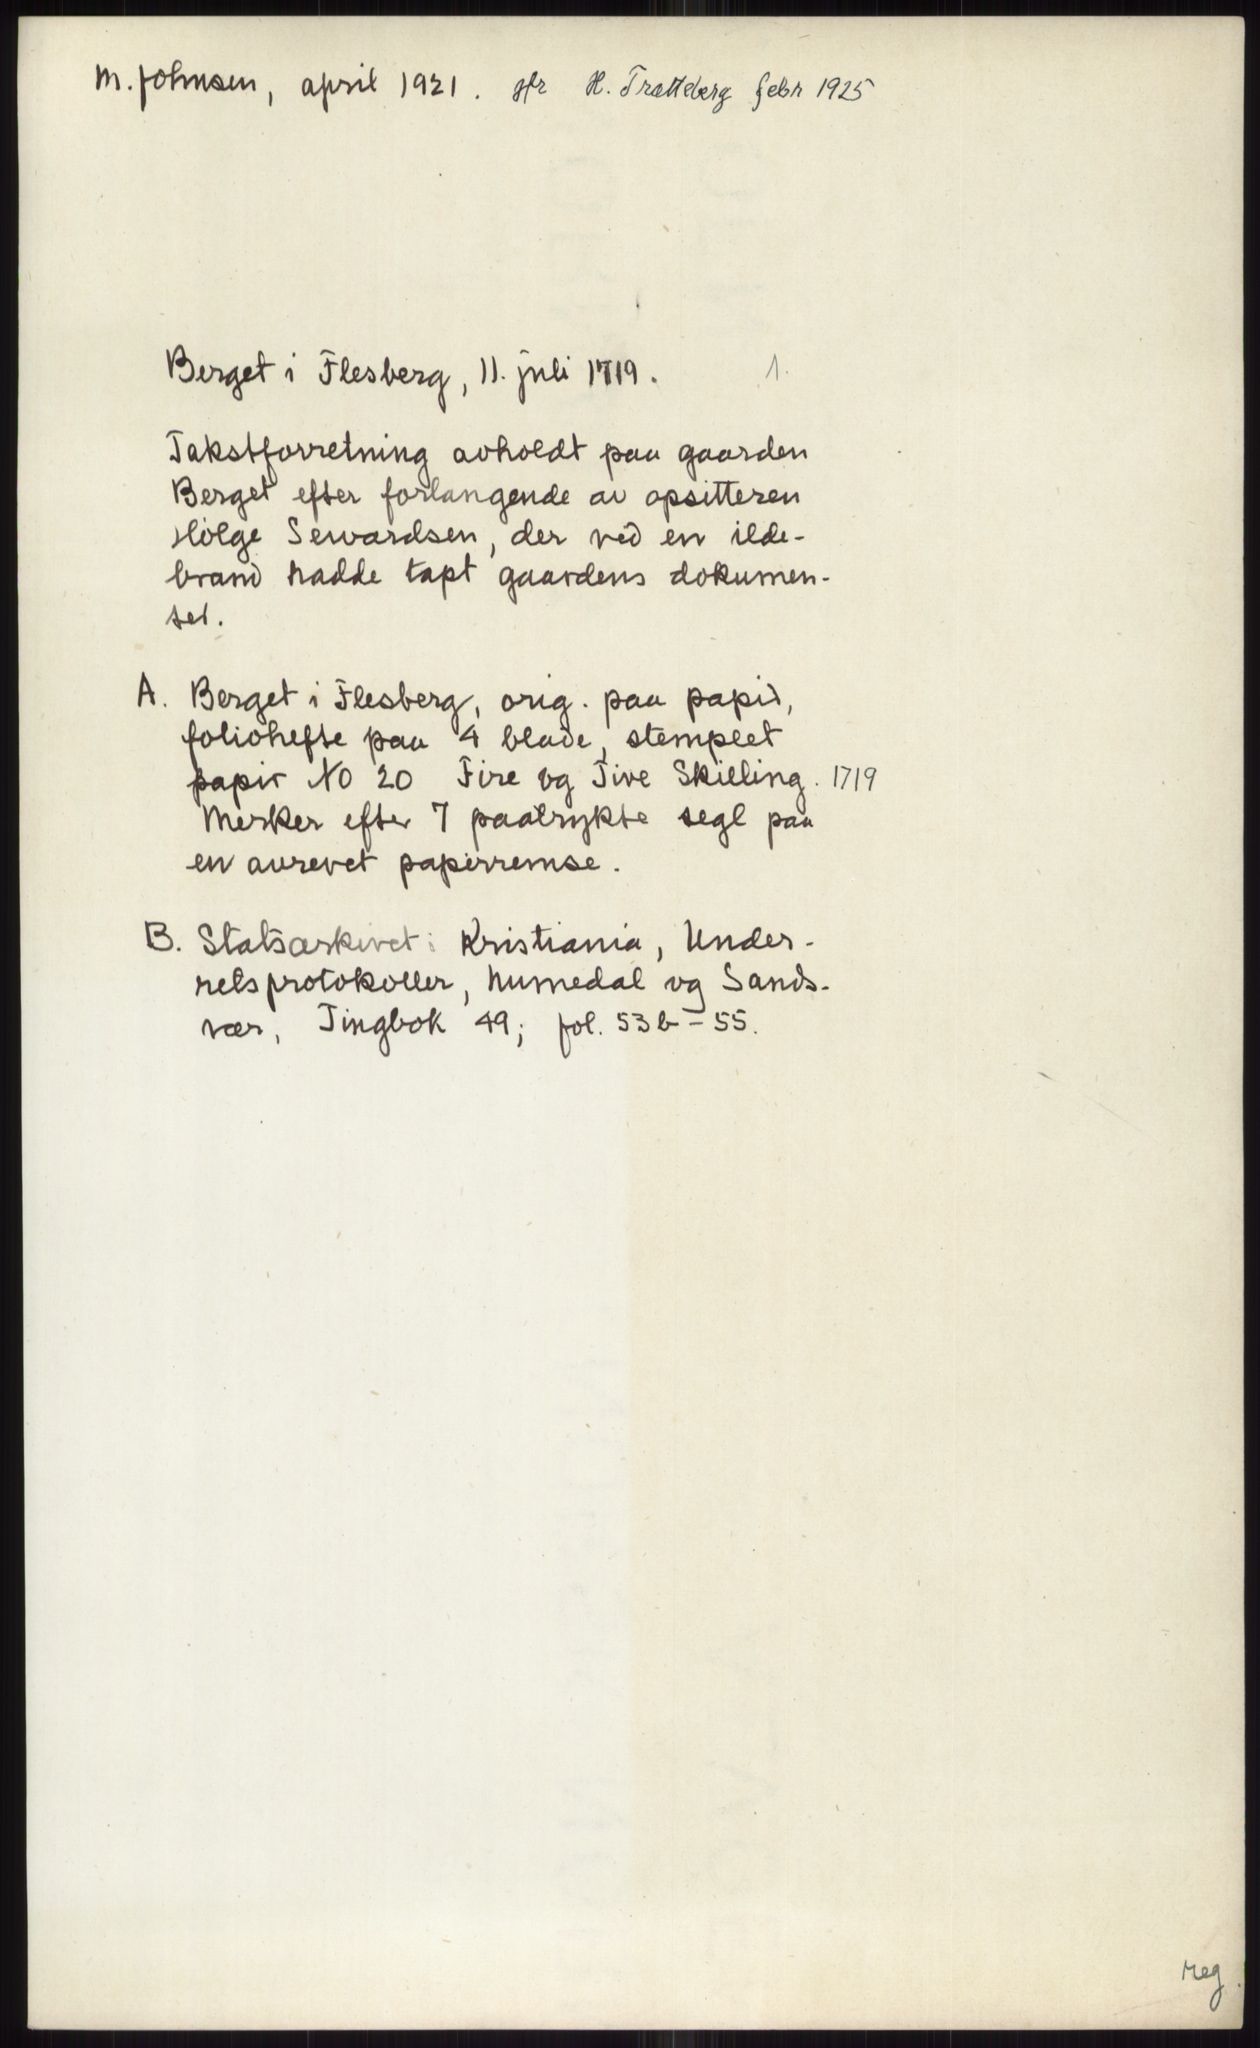 M. Johnsen, april 1921. Hr H. Trætteberg febr 1925
Berget i Flesberg, 11. juli 1719. 1.
Takstforretning avholdt paa gaarden
Berget efter forlangende av opsitteren
Holge Sewardsen, der ved en ilde-
brand hadde tapt gaardens dokumen-
ter.
A. Berget i Flesberg, orig. paa papir,
foliohefte paa 4 blade, stemplet
papir No 20 Fire og Tive Skilling. 1719
Merker efter 7 paatrykte segl paa
en avrevet papirremse.
B. Statsarkivet i Kristiania, Under-
retsprotokoller, Numedal og Sands-
vær, Tingbok 49; fol. 53 b - 55.
reg.